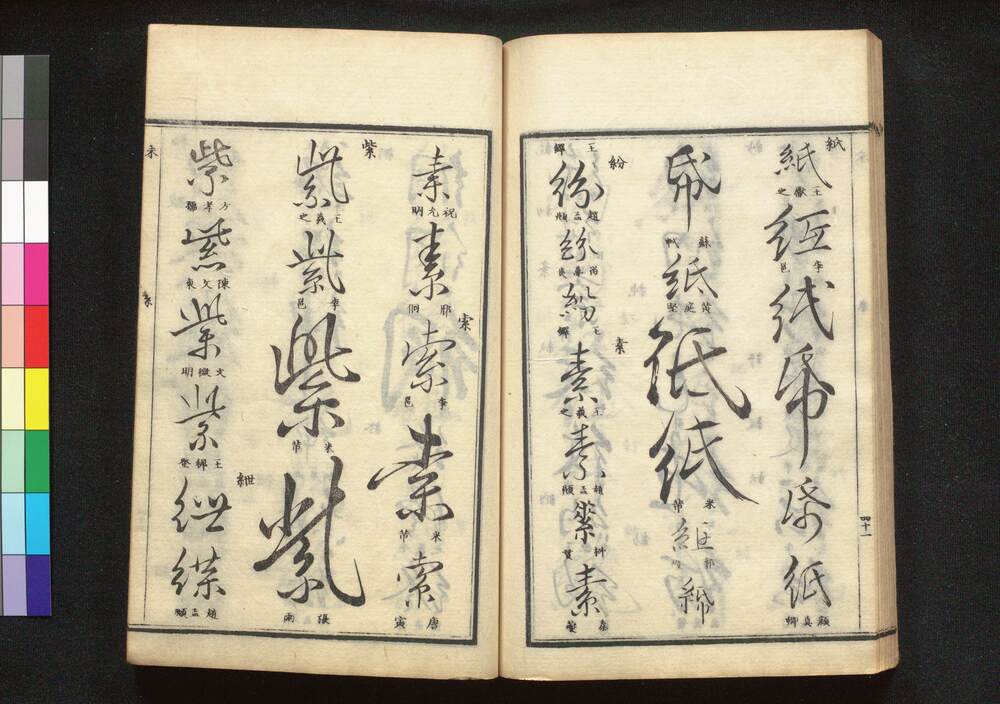 紙
紙
王獻之
紙
李邕
紙
帋
帋
紙
顏真卿
四十一
帋
蘇軾
紙
黃庭堅
紙
紙
米芾
王鐸
紛
紛
趙孟頫
紛
紛
王鐸
素
素
王羲之
素
趙孟頫
素
素
素
祝允明
素
邢侗
索
索
李邕
索
米芾
索
唐寅
紫
紫
王羲之
紫
李邕
紫
米芾
紫
張雨
紫
方孝孺
紫
陳文東
紫
文徵明
紫
王穉登
紲
紲
緤
趙孟頫
未
糸